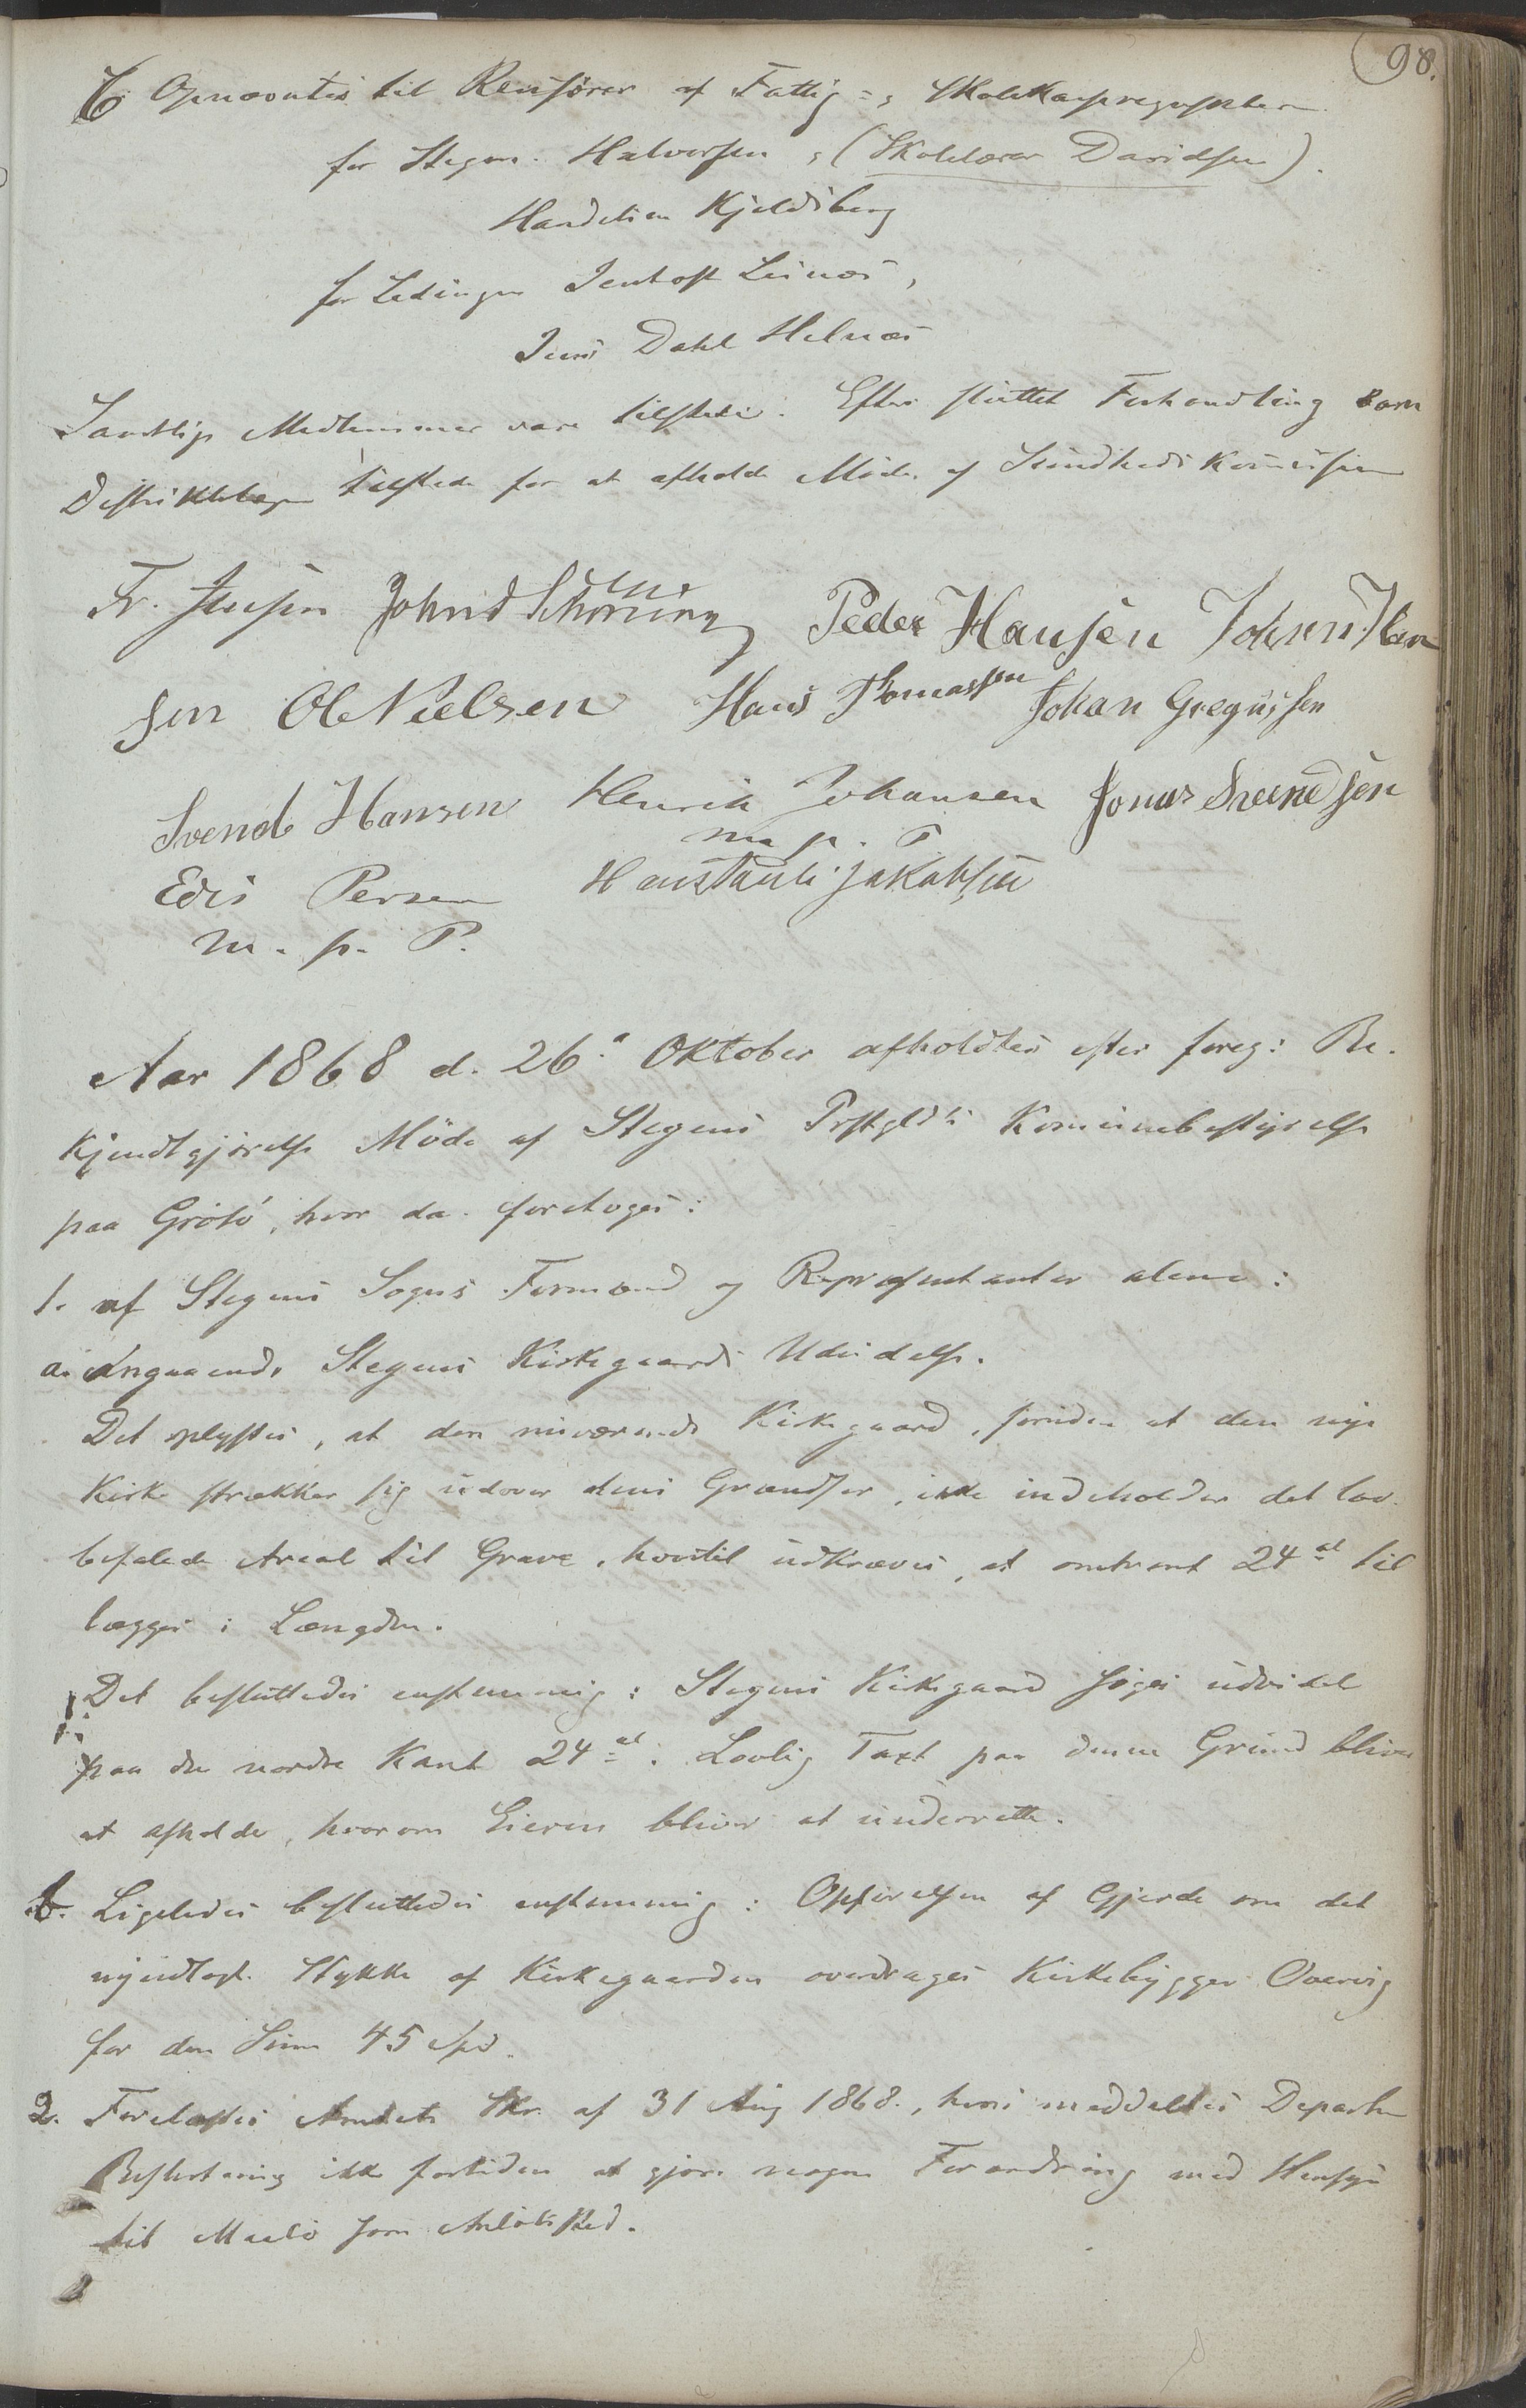 98.
6 Opnævntes til Revisorer af Fattig- &
for Stegen. Halvorsen, (Skolelærer Davidsen).
Handelsm Kjeldsberg
for Ledingen Jentoft Lisnæs,
Jens Dahl Helnæs
Samtlige Medlemmer vare tilstede. Efter sluttet Forhandling kom
Distriktslægen tilstede for at afholde Møde af Sundhedskomissionen
Fr. Jensen John d Schøning Peder Hansen Johan Han
sen Ole Nielsen Hans Thomassen Johan Gregussen
Svend Hansen Henrik Johansen Jonas Svendsen
m. p. P.
Edis Persen Hans Pauli Jakobsen
m. p. P.
Aar 1868 d. 26. Oktober afholdtes efter foreg: Be-
kjendtgjørelse Møde af Stegens Prstgjlds Komunebestyrelse
paa Grötö, hvor da foretoges:
1. af Stegens Sogns Formænd og Repræsentanter alene:
a. Angaaende Stegens Kirkegaards Udvidelse.
Det oplystes, at den nuværende Kirkegaard, foruden at den nye
Kirke strækker sig udover dens Grændser, ikke indeholder det lov-
befalede Areal til Grave, hvortil udkræves, at omtrent 24 al til
lægges i Længden.
Det besluttedes enstemmig: Stegens Kirkegaard søges udvidet
paa den nordre Kant 24 al. Lovlig Taxt paa denne Grund bliver
at afholde, hvorom Eieren bliver at underrette.
b. Ligeledes besluttedes enstemmig: Opførelsen af Gjerde om det
nyindtagt. Stykke af Kirkegaarden overdrages Kirkebygger Overvig
for den Sum 45 Spd.
2. Forelæstes Amtets Skr. af 31 Aug 1868., hvori meddeltes Departem
Beslutning ikke fortiden at gjøre nogen Forandring med Hensyn
til Maalö som Anløbssted.